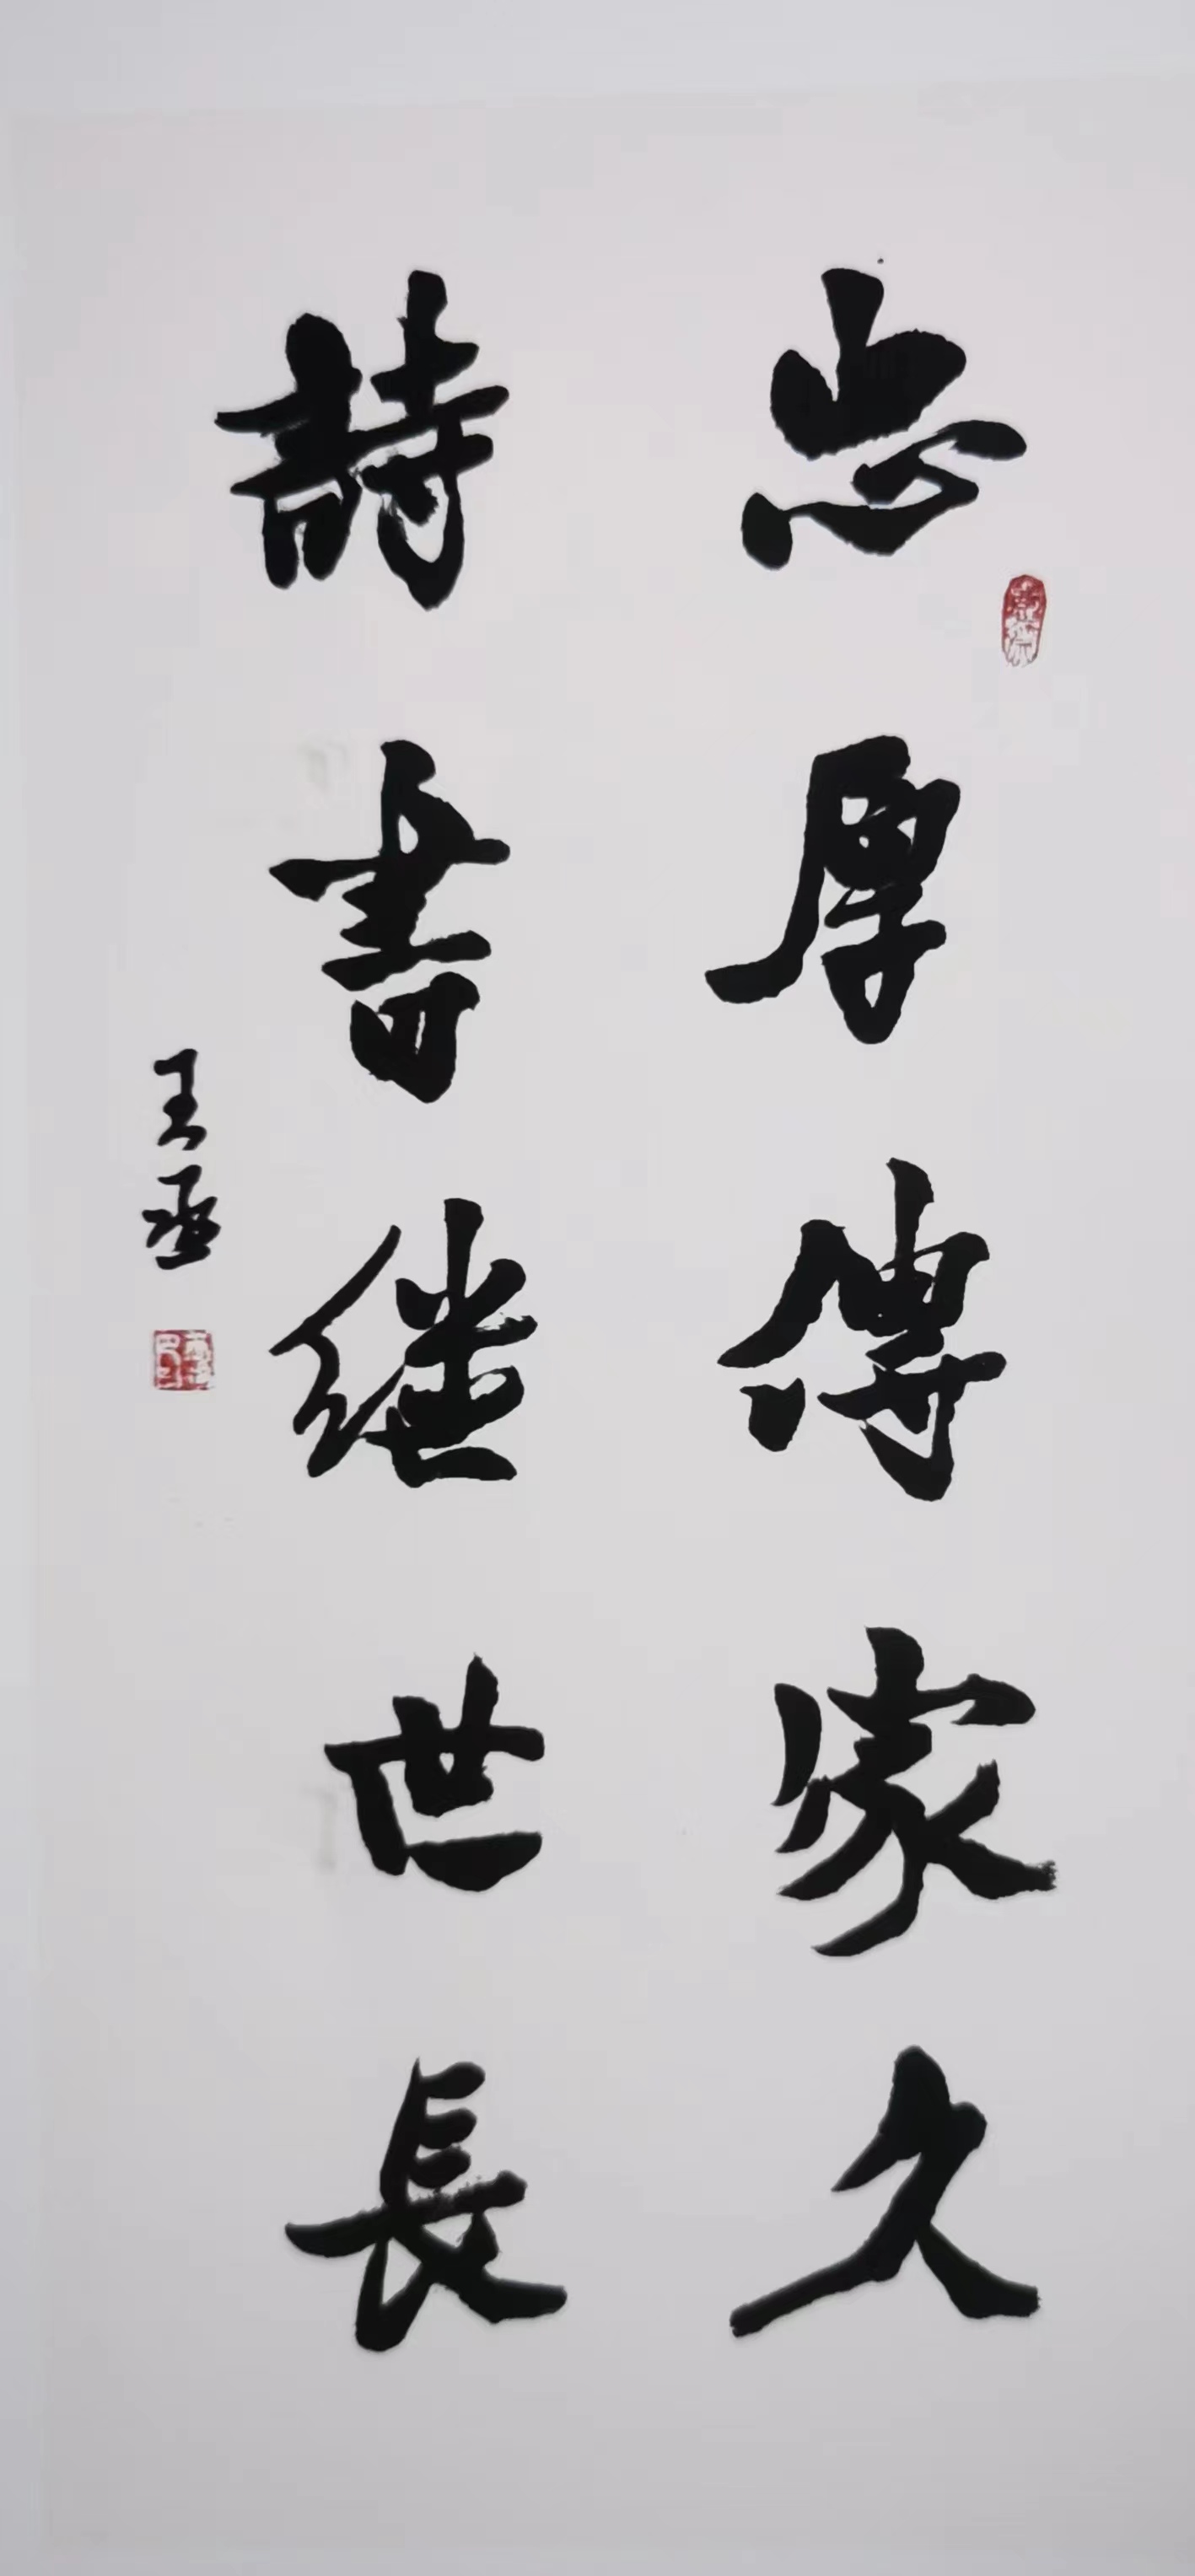 忠厚傳家久
詩書继世長
王丞